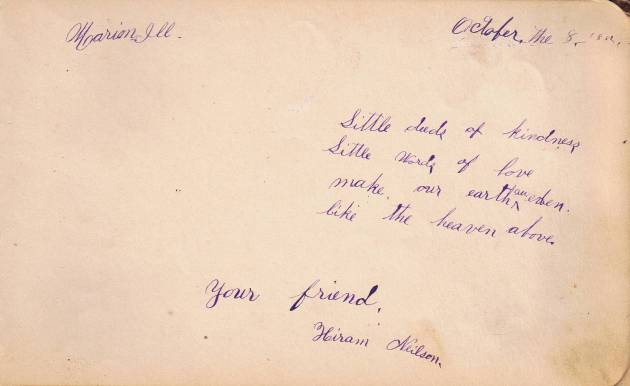 Marion, Ill.
Octofer, the 8
Little deeds of kindness
Little words of love
make, our earth an eben.
like the heaven above.
Your friend,
Hiram Neilson.